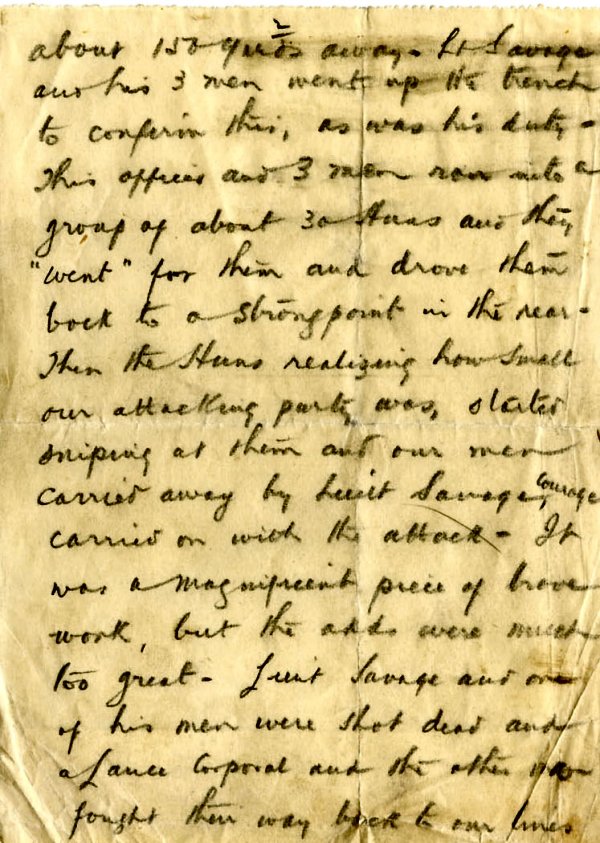 about 150 yards away - Lt Savage
2
and his 3 men went up the trench
to confirm this, as was his duty -
This officer and 3 men ran into a
group of about 30 Huns and they
"went" for them and drove them
back to a strongpoint in the rear -
Then the Huns realizing how small
our attacking party was, started
sniping at them and our men
carried away by Lieut Savage's courage
carried on with the attack - It
was a magnificent piece of brave
work, but the odds were much
too great - Lieut Savage and one
of his men were shot dead and
a Lance Corporal and the other man
fought their way back to our lines